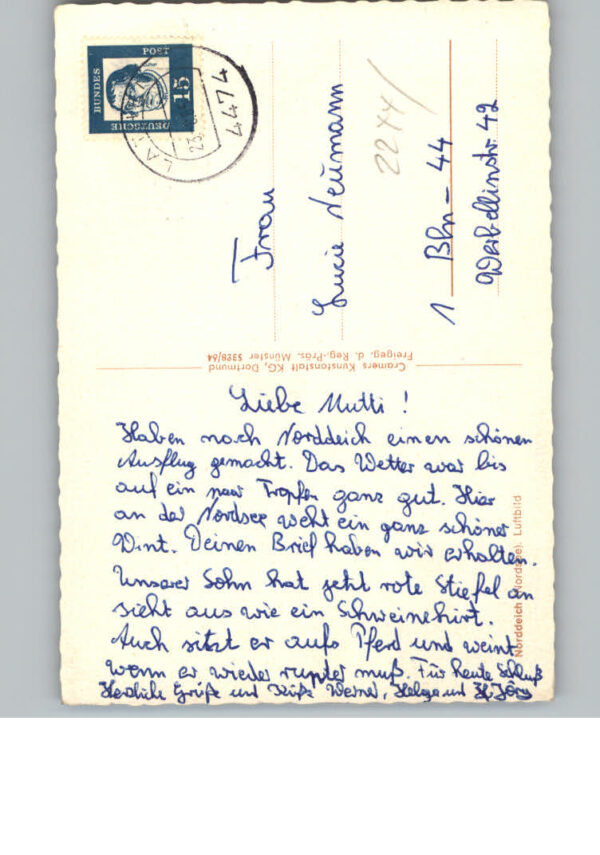 DEUTSCHE
BUNDES
POST
15
4474
Frau
Lucie Neumann
1 Bln - 44
Werbellinstr 42
2244/
Cramers Kunstanstalt KG, Dortmund
Freigeg. d. Reg.-Präs. Münster 5328/64
Liebe Mutti !
Haben nach Norddeich einen schönen
Ausflug gemacht. Das Wetter war bis
auf ein paar Tropfen ganz gut. Hier
an der Nordsee weht ein ganz schöner
Wint. Deinen Brief haben wir erhalten.
Unserer Sohn hat jetzt rote Stiefel an
sieht aus wie ein Schweinehirt.
Auch sitzt er aufs Pferd und weint
wenn er wieder runter muß. Für heute Schluß
Herzliche Grüße und Küße Werner, Helga und H. Jörg
Norddeich (Nordsee). Luftbild